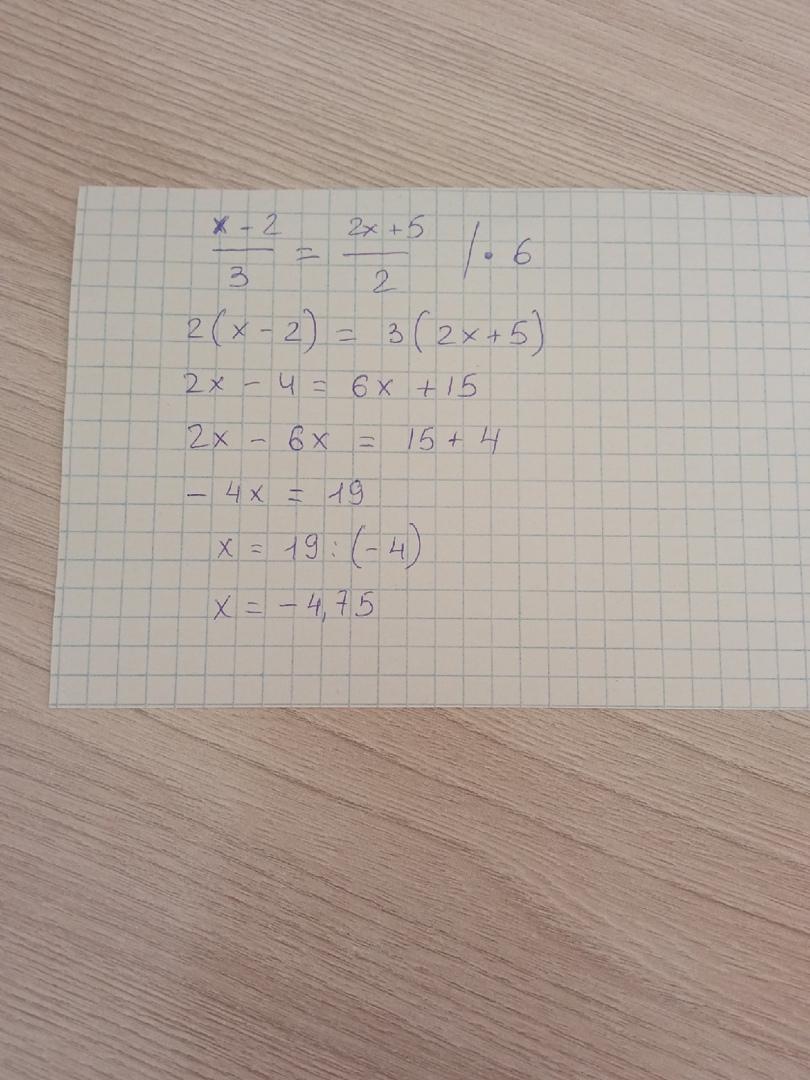 x - 2 / 3 = 2x + 5 / 2 /· 6
2(x - 2) = 3(2x + 5)
2x - 4 = 6x + 15
2x - 6x = 15 + 4
- 4x = 19
x = 19 : (-4)
x = - 4,75